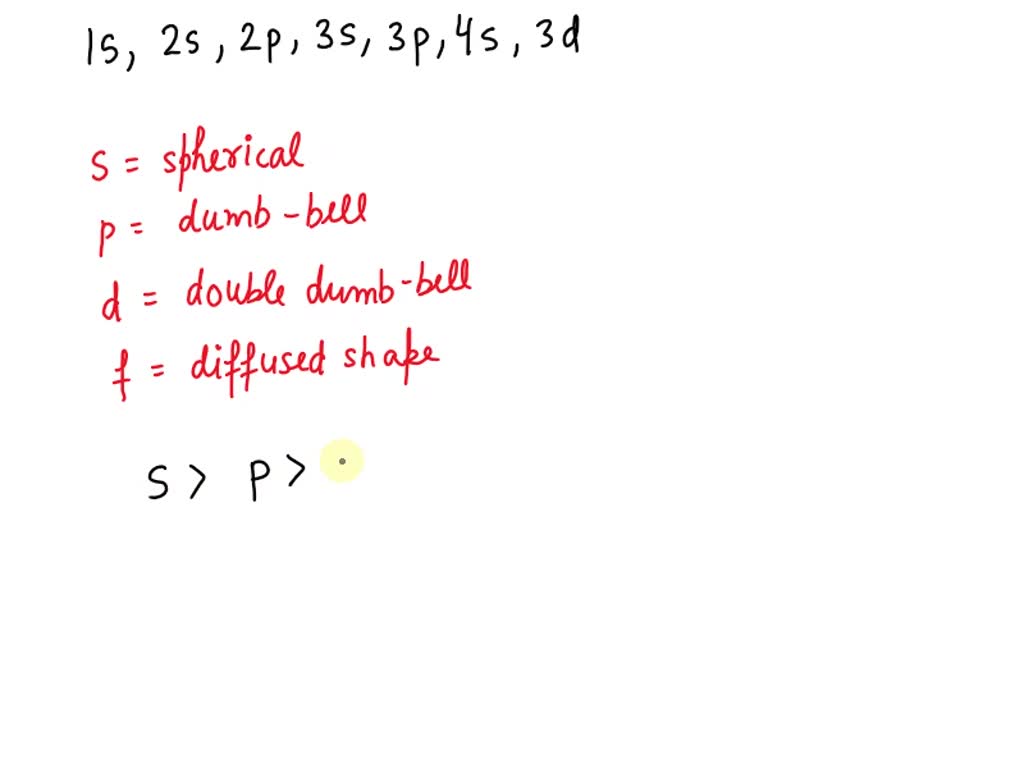 1s, 2s, 2p, 3s, 3p, 4s, 3d
s = spherical
p = dumb-bell
d = double dumb-bell
f = diffused shape
s > p >